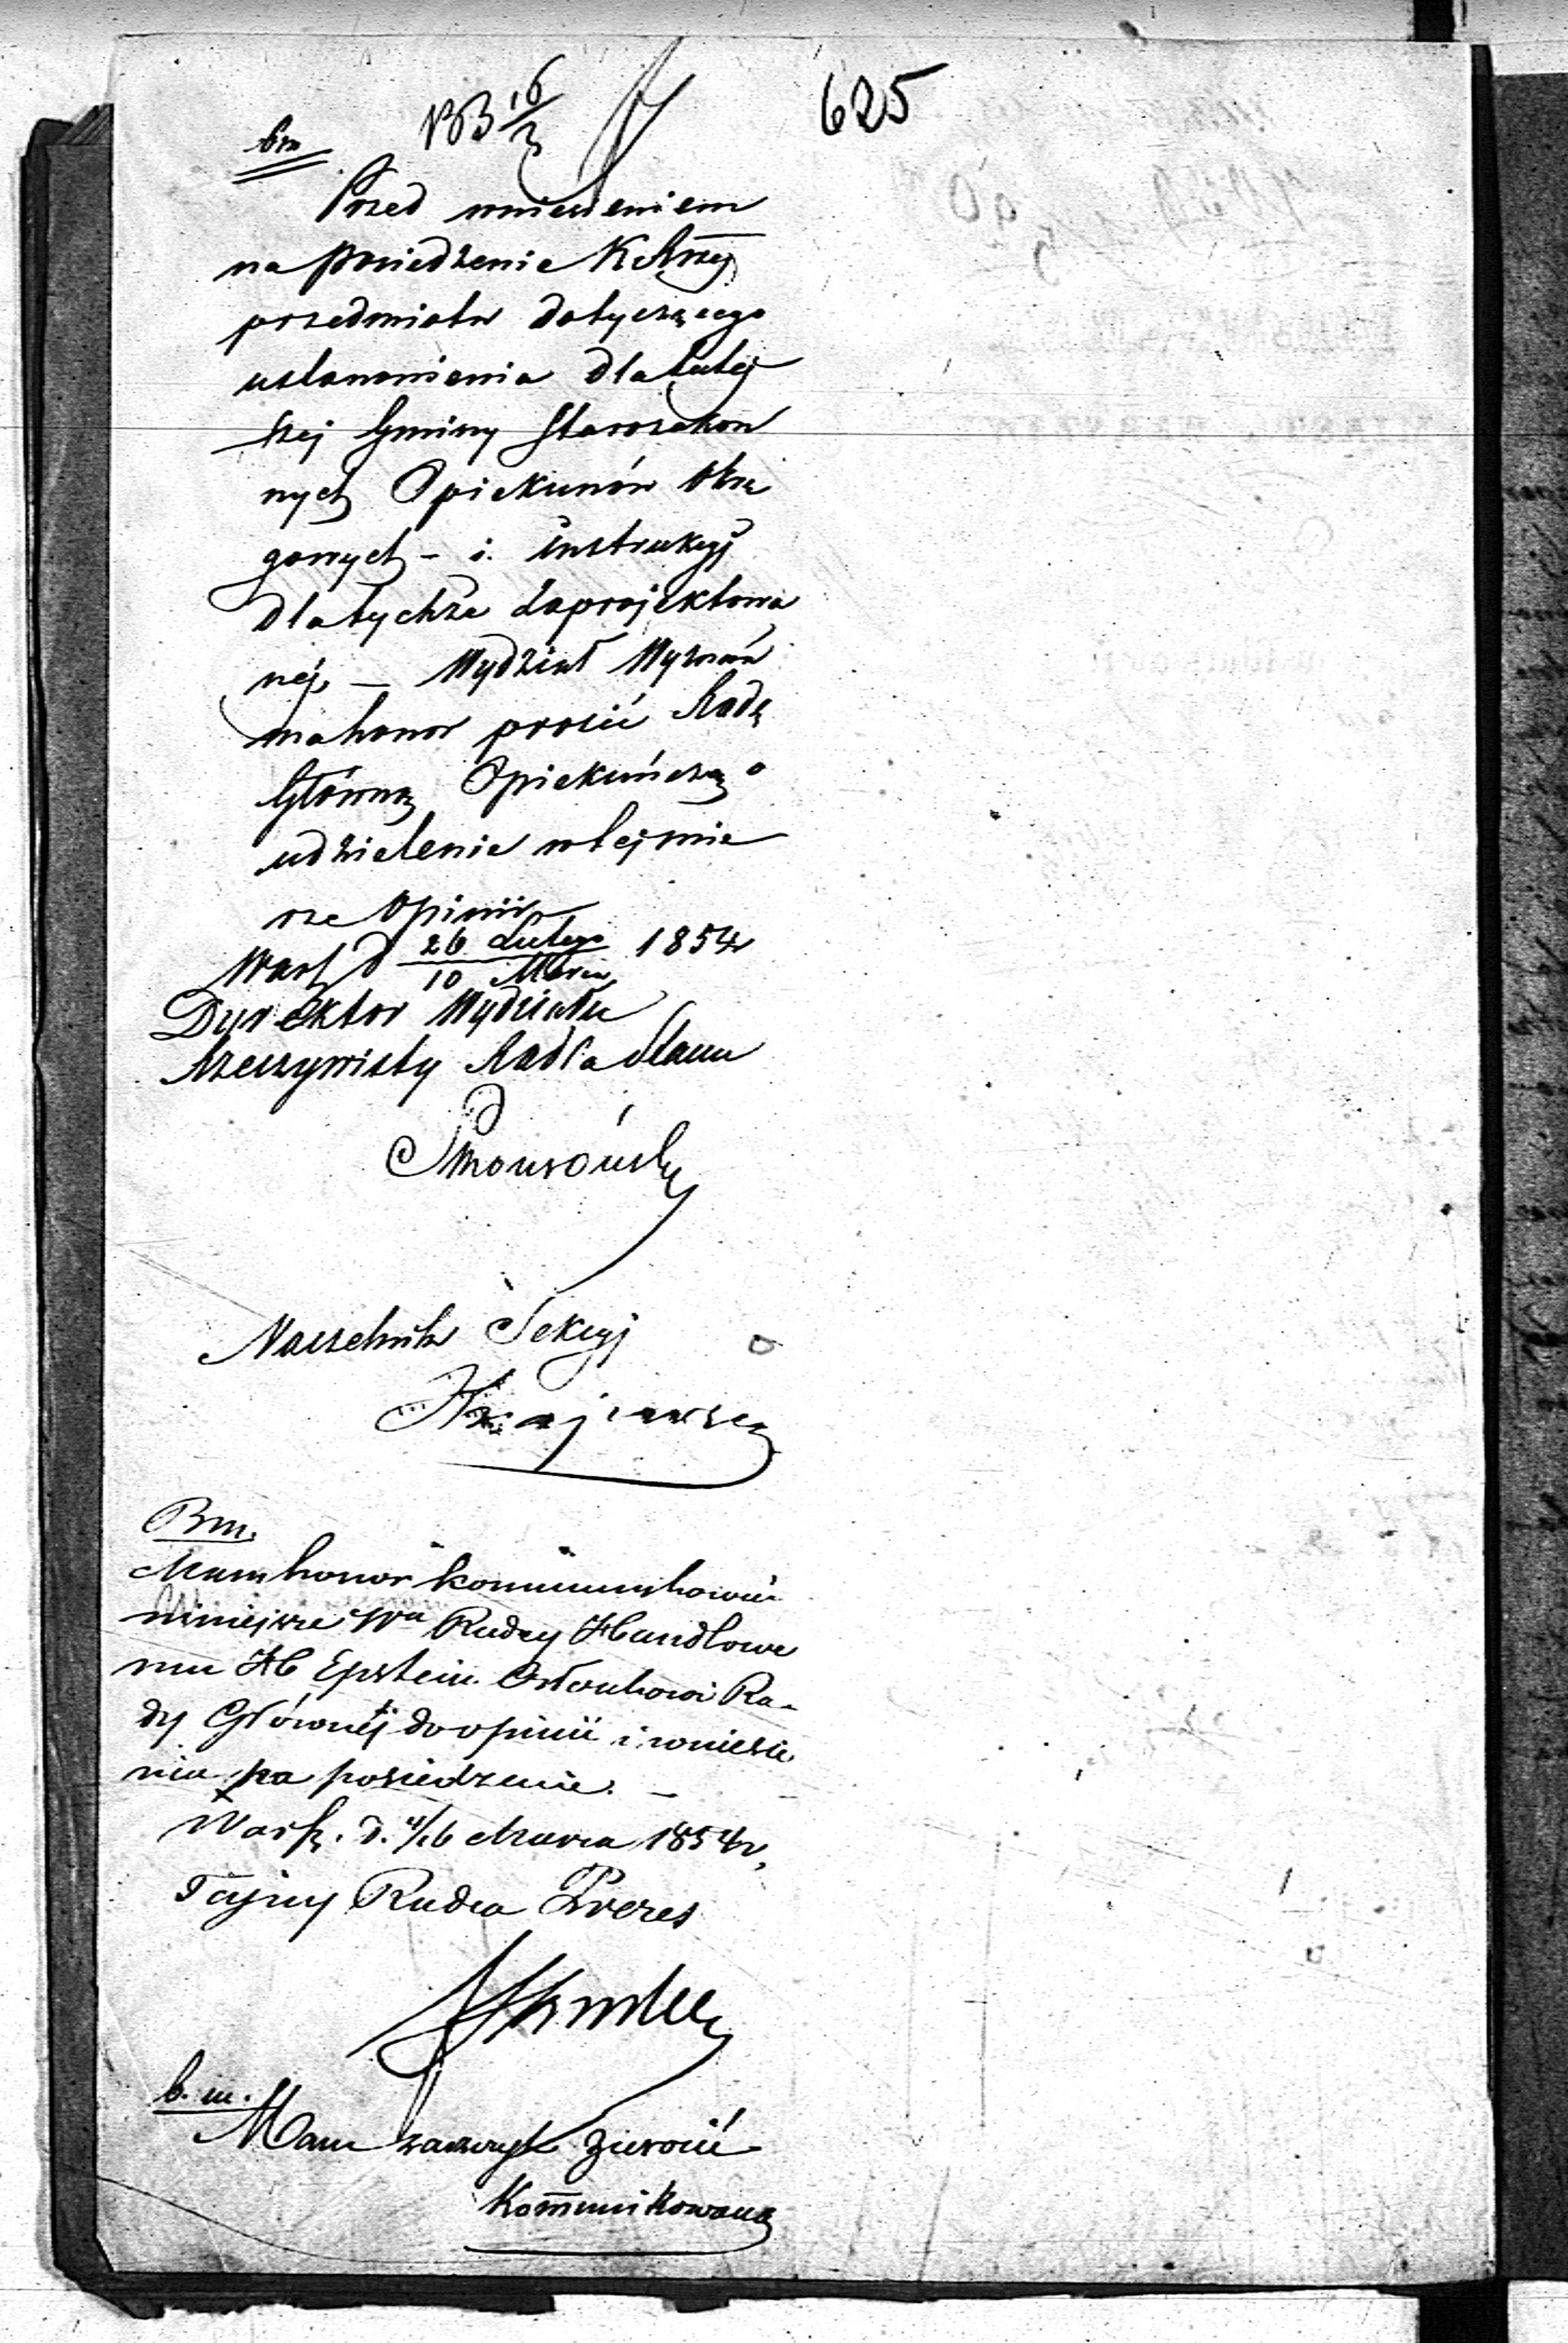 625
bm
Przed wniesieniem
na posiedzenie K. Rząd.
przedmiotu dotyczącego
ustanowienia dla tutej
szej Gminy Starozakon
nych Opiekunów Okrę
gowych - i instrukcyj
dla tychże zaprojektowa
néj, — Wydział Wyznań
ma honor prosić Radę
Główną Opiekuńczą o
udzielenie w tej mie
rze Opinii
Warsz d 26 Lutego / 10 Marca 1854
Dyrektor Wydziału
Rzeczywisty Radca Stanu
Naczelnik Sekcyi
Krajewski
Bm.
Mam honor kommunikować
niniejsze Wu Radcy Handlowe
mu H Epstein Członkowi Ra-
dy Głównéj do opinii i wniesie
nia na posiedzenie. —
Warsz. d. 4/16 Marca 1854 r.
Tajny Radca Prezes
b. m.
Mam zaszczyt zwrócić
Kommunikowaną